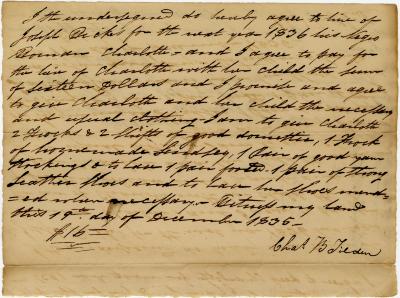 I the undersigned do hereby agree to hire of
Joseph Dicks for the next year 1836 his Negro
Woman Charlotte - and I agree to pay for
the hire of Charlotte with her child the sum
of Sixteen Dollars and I promise and agree
to give Charlotte and her child the necessary
and usual clothing I am to give Charlotte
2 Frocks & 2 Shifts of good domestic, 1 Frock
of Linsey, 1 Pair of good yarn
Stockings & to have 1 pair 1 pair of strong
Leather Shoes and to have her shoes mend=
=ed when necessary - Witness my hand
this 19th day of December 1835 -
$16=
Chas. B Tilden